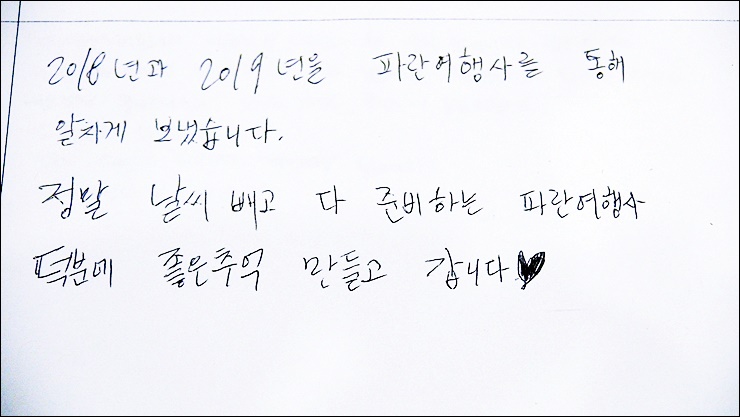 2018년과 2019년을 파란여행사를 통해
알차게 보냈습니다.
정말 날씨 빼고 다 준비하는 파란여행사
덕분에 좋은추억 만들고 갑니다♥